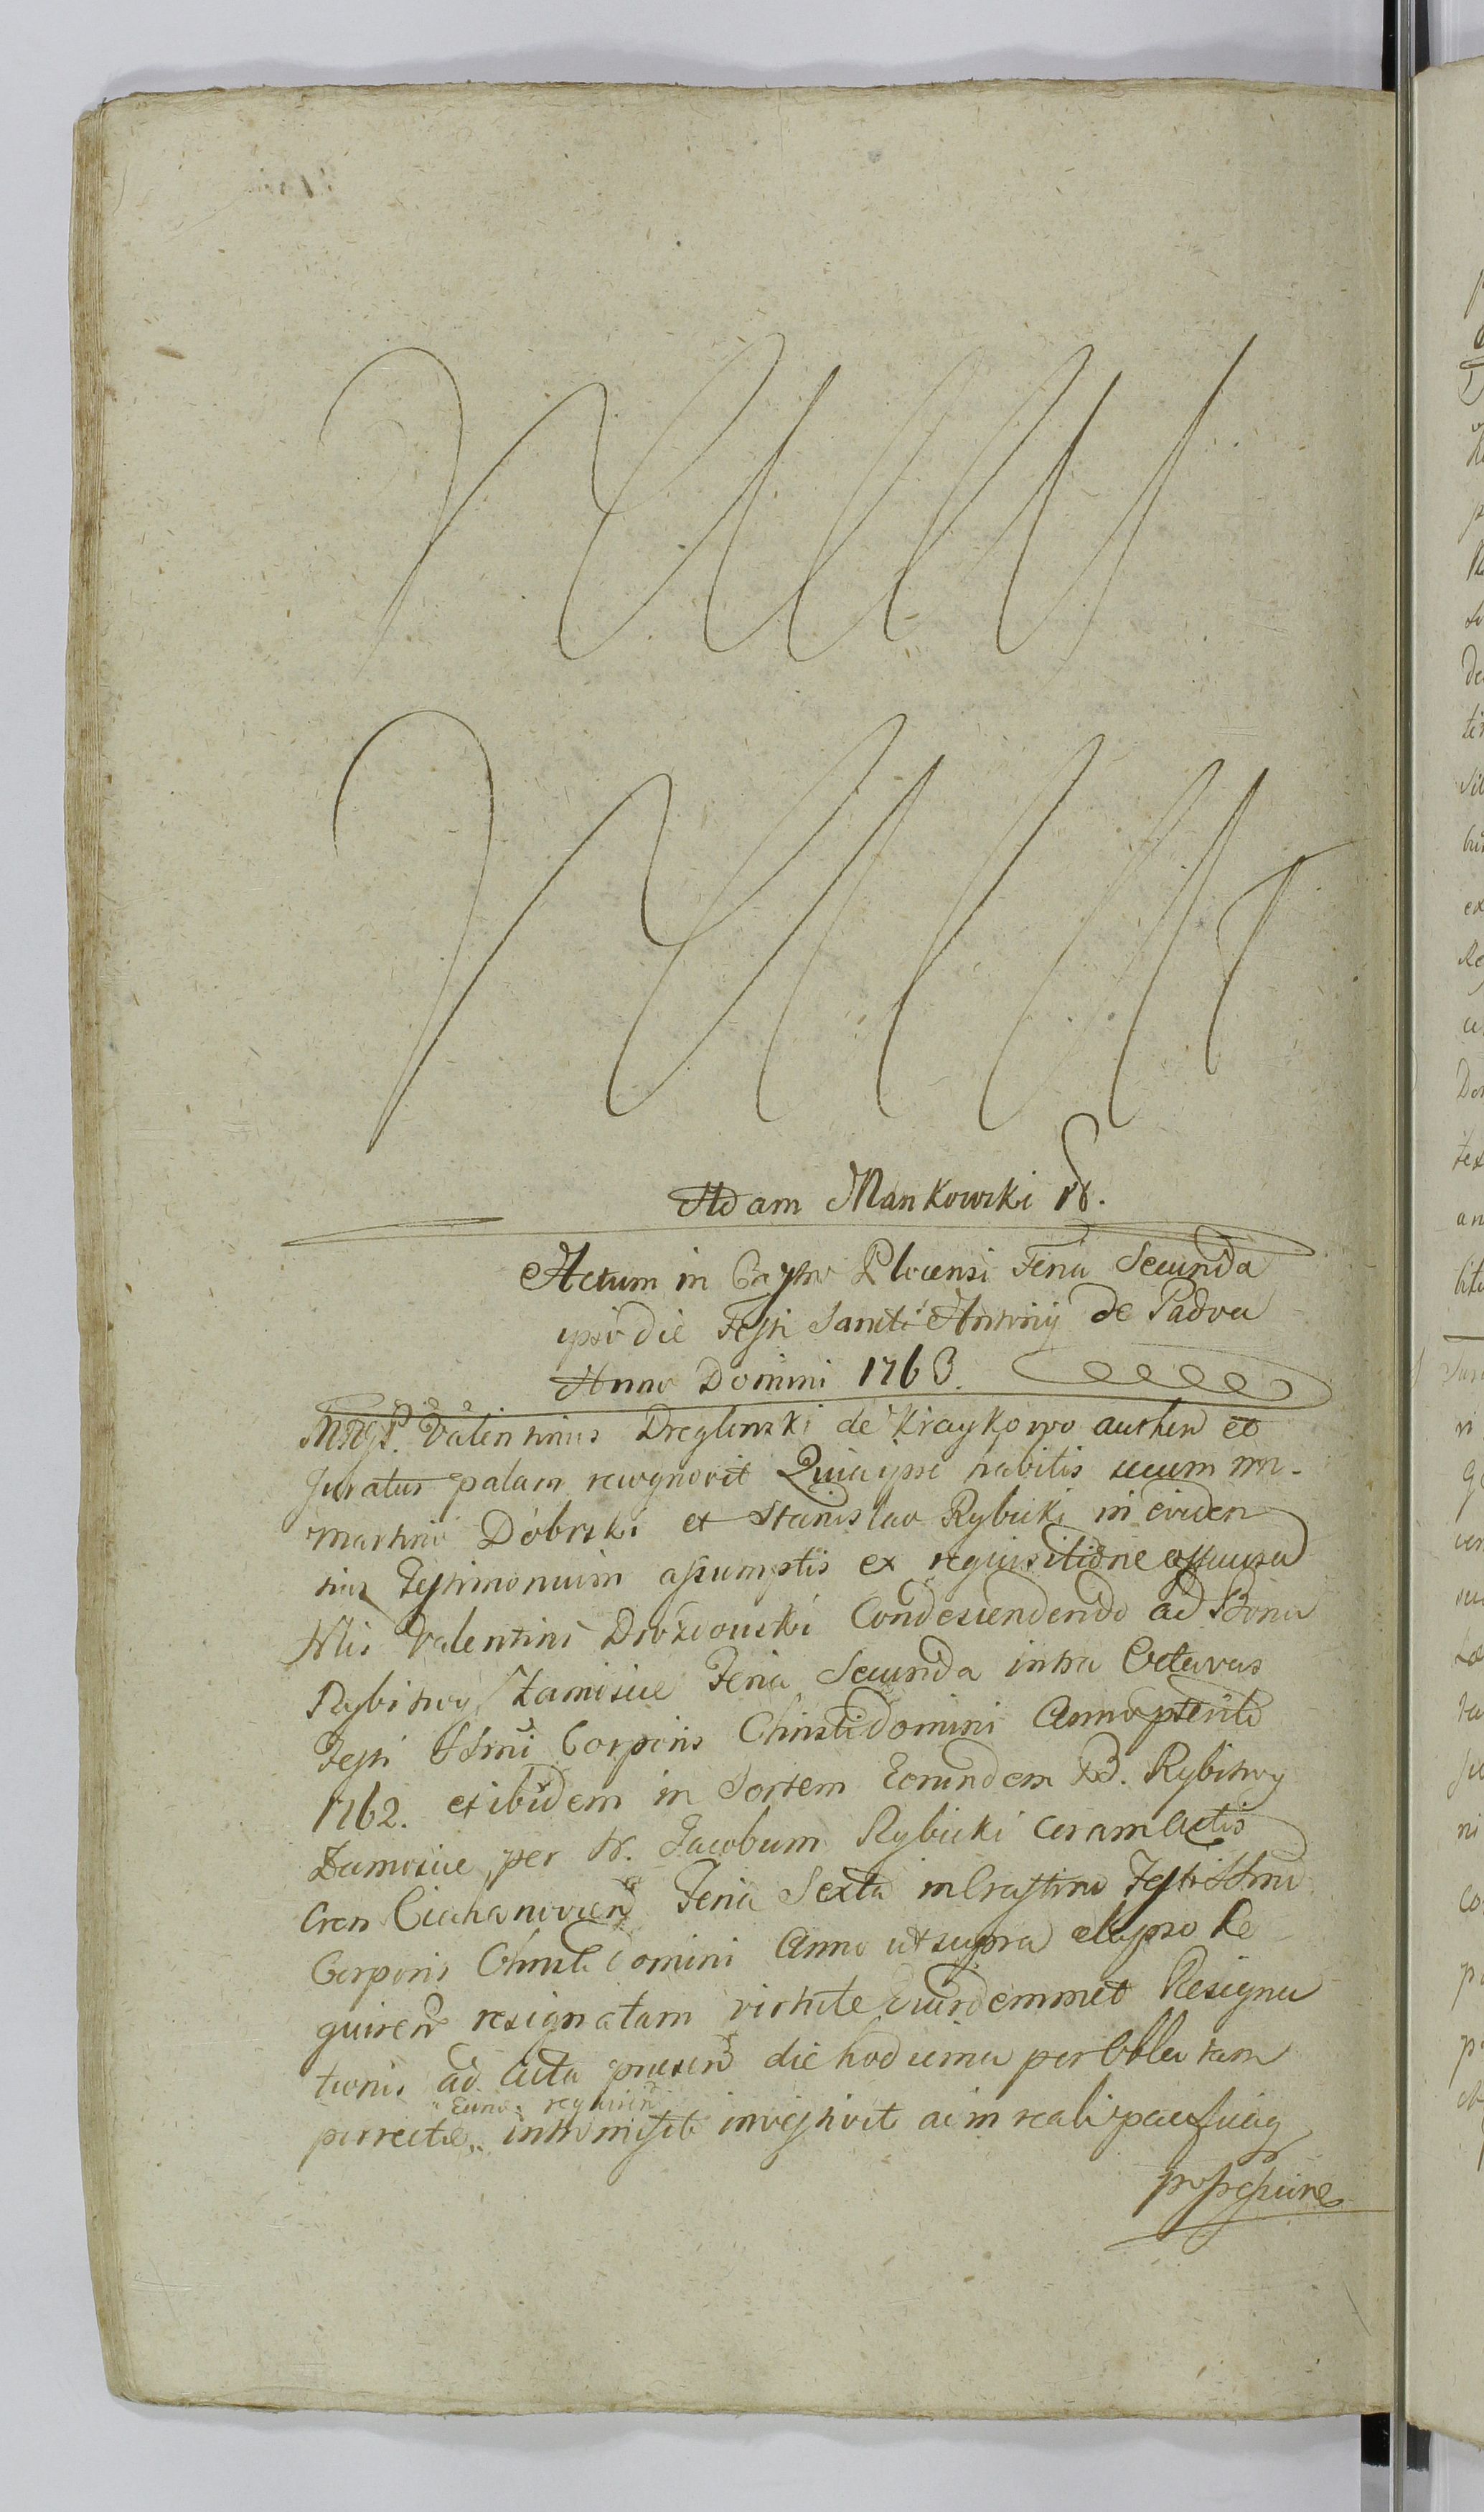 Adam Mankowski
Actum in Castro Plocensi Feria Secunda
ipso die Festi Sancti Antonij de Padva
Anno Domini 1763.
Valentinus Dreglinski de Kraykowo authen et
Juratus palam recognovit Quia ipse habitis secum nn.
Martino Dobrski et Stanislao Rybicki in eviden
tius Testimonium assumptis ex requisitione
Nlis Valentini Drozdowski Condescendendo ad Bona
Rybitwy Zamoscie Feria Secunda intra Octavas
Festi SSmi Corporis Christi Domini Anno
1762. et ibidem in Sortem Eorundem B. Rybitwy
Zamoscie per N. Jacobum Rybicki coram Actis
Cren Ciechanovien Feria Sexta in Crastino Festi SSmi
Corporis Christi Domini Anno ut supra elapso Re
quiren resignatam virtute Eiusdemmet Resigna
tionis ad Acta presen die hodierna per Oblatam
requiren
porrectae intromisit investivit ac in realem